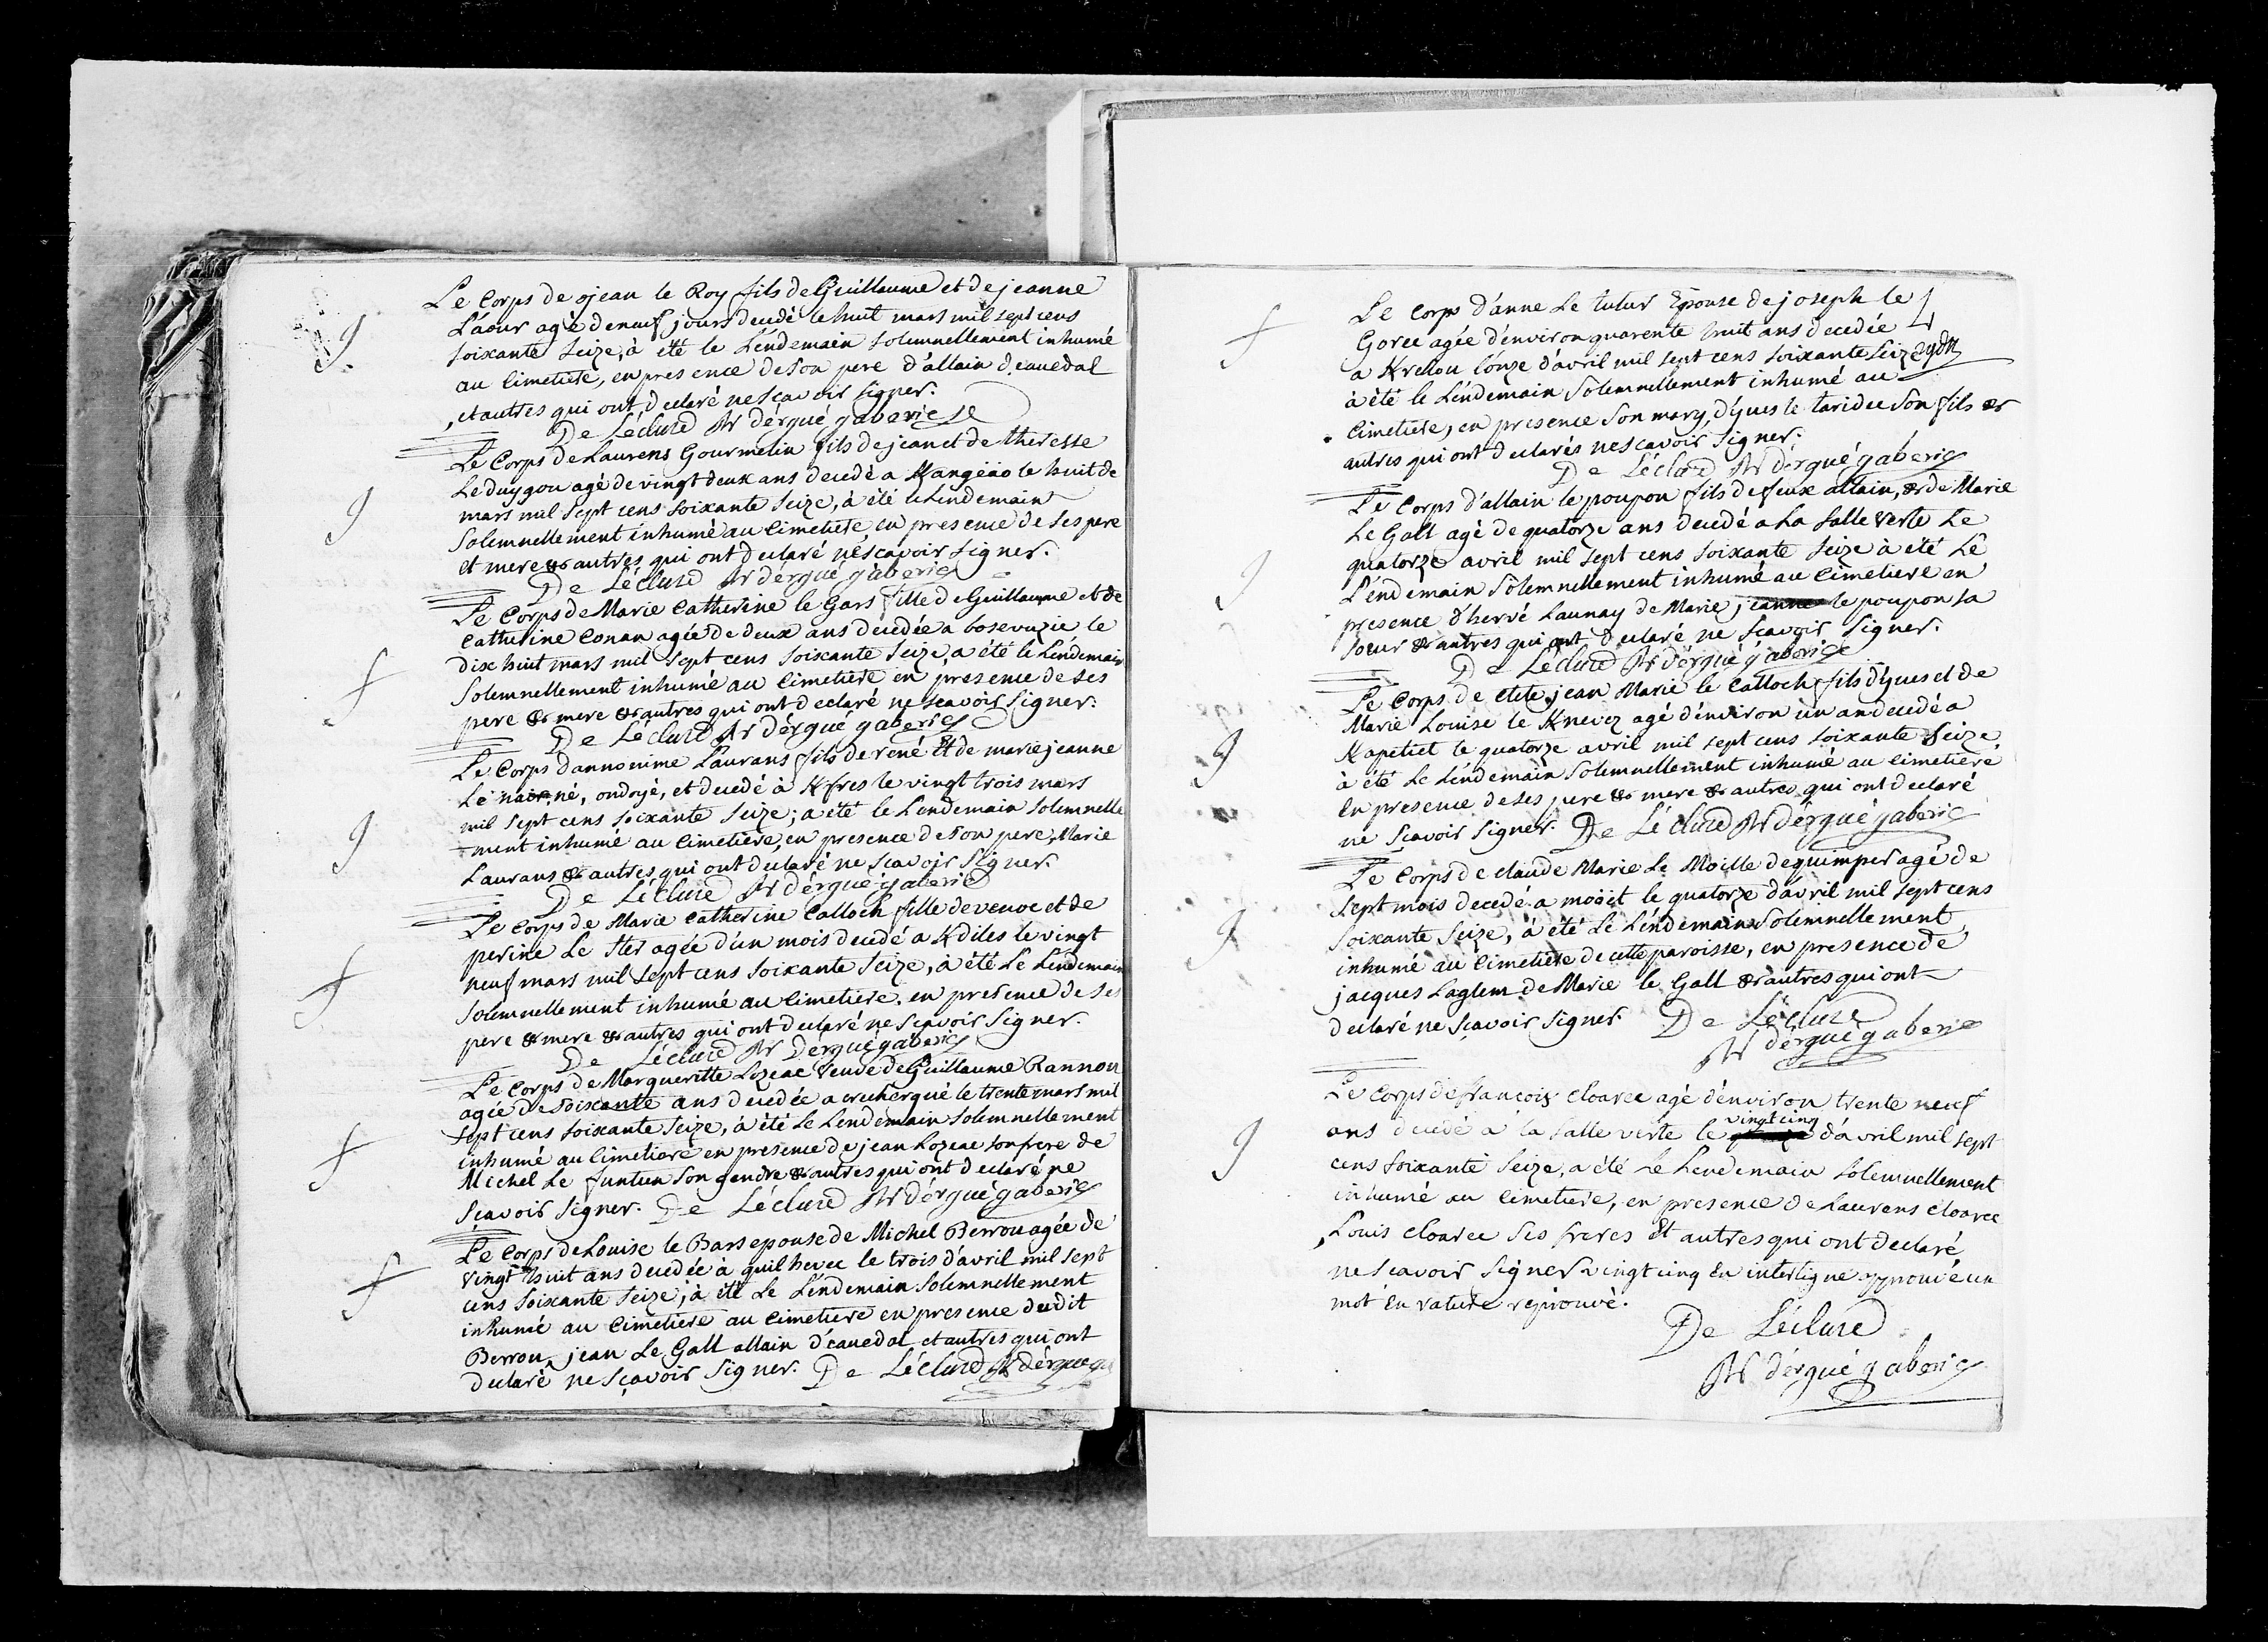 g
Le Corps de jean le Roy fils de Guillaume et de jeanne
L'aour agé de neuf jours decedé le huit mars mil sept cens
soixante seize, à été le Léndemain solemnellement inhumé
au Cimetiere, en presence de son pere d'allain deauedal
, et autres qui ont declaré ne sçavoir signer.
De Lécluse Rr dérgué gaberic
g
Le Corps de Laurens Gourmelin fils de jean et de theresse
Le duygou agé de vingt deux ans decedé a Kangéao le huit de
mars mil sept cens soixante seize, à été le Lendemain
solemnellement inhumé au Cimetiere, en presence de ses pere
et mere & autres qui ont declaré ne sçavoir signer.
De Lécluse Rr dérgué gaberic
f
Le Corps de Marie Catherine le Gars fille de Guillaume et de
Catherine Conan agée de deux ans décedée a le
dix huit mars mil sept cens soixante seize, a été le Léndemain
solemnellement inhumé au Cimetiere en presence de ses
pere & mere & autres qui ont declaré ne sçavoir signer.
De Lécluse Rr dérgué gaberic
g
Le Corps dannonime Laurans fils de rené Et de marie jeanne
Le né, ondoyé, et decedé à Kfres le vingt trois mars
mil sept cens soixante seize; a été le Lendemain solemnelle
-ment inhumé au Cimetiere, en presence de son pere, Marie
Laurans & autres qui ont declaré ne sçavoir signer.
De Lécluse Rr dérgué gaberic
f
Le Corps de Marie Catherine Calloch fille de et de
perine Le Ster agée d'un mois decedé a Kdiles le vingt
neuf mars mil sept cens soixante seize, à été Le Lendemain
solemnellement inhumé au Cimetiere. en presence de ses
pere & mere & autres qui ont declaré ne sçavoir signer.
De Lécluse Rr Dérgué gaberic
f
Le Corps de Margueritte Lozeac veuve de Guillaume Rannou
agée de soixante ans decedée a crecherqué le trente mars mil
sept cens soixante seize, à été Le Lendemain solemnellement
inhumé au Cimetiere en presence de jean Lozeac son frere de
Michel Le funtun son gendre & autres qui ont declaré ne
sçavoir signer. De Lécluse Rr dérgué gaberic
f
Le Corps de Louise le Bars epouse de Michel Berrou agée de
vingt huit ans decedée à quilhevec le trois d'avril mil sept
cens soixante seize; à été Le Léndemain solemnellement
inhumé au Cimetiere au Cimetiere en presence dudit
Berrou, jean Le Gall allain déauedal et autres qui ont
declaré ne sçavoir signer. De Lécluse Rr dérgué ga
f
Le Corps d'anne Le tutur Epouse de joseph le
Gorec agée d'énviron quarente huit ans decedée
a Krelou l'onze d'avril mil sept cens soixante seize
à été le Léndemain solemnellement inhumé au
Cimetiere, en presence son mary, d'ÿves le taridec son fils &
autres qui ont declarés ne sçavoir signer.
De Lécluse Rr dérgué gaberic
g
Le Corps d'allain le poupon fils de feux allain, & de Marie
Le Gall agé de quatorze ans decedé a La salle verte Le
quatorze avril mil sept cens soixante seize à été Le
L'éndemain solemnellement inhumé au Cimetiere en
presence d'hervé Launay de Marie jeanne le poupon sa
soeur & autres qui ont declaré ne sçavoir signer.
De Lécluse Rr dérgué gaberic
g
Le Corps de jean Marie le Calloch fils d'ÿves et de
Marie Louise le Knevez agé d'énviron ùn an decedé a
Kapetiet le quatorze avril mil sept cens soixante seize
à été Le Léndemain solemnellement inhumé au cimetiere
En presence de ses pere & mere & autres qui ont declaré
ne sçavoir signer. De Lécluse Rr dérgué gaberic
g
Le Corps de claude Marie Le Moille de quimper agé de
sept mois decedé a le quatorze d'avril mil sept cens
soixante seize, à été Lé Léndemain solemnellement
inhumé au Cimetiere de cette paroisse, en presence de
jacques Laglem de Marie le Gall & autres qui ont
declaré ne sçavoir signer. De Lécluse
Rr dérgué gaberic
g
Le Corps de francois cloarec agé d'énviron trente neuf
vingt cinq
ans decedé à la salle verte le d'avril mil sept
cens soixante seize, a été Le Lendemain solemnellement
inhumé au Cimetiere, en presence de Laurens cloarec
, Louis cloarec ses freres Et autres qui ont declaré
ne sçavoir signer vingt cinq En interligne approuvé un
mot En rature reprouvé.
De Lécluse
Rr dérgué gaberic